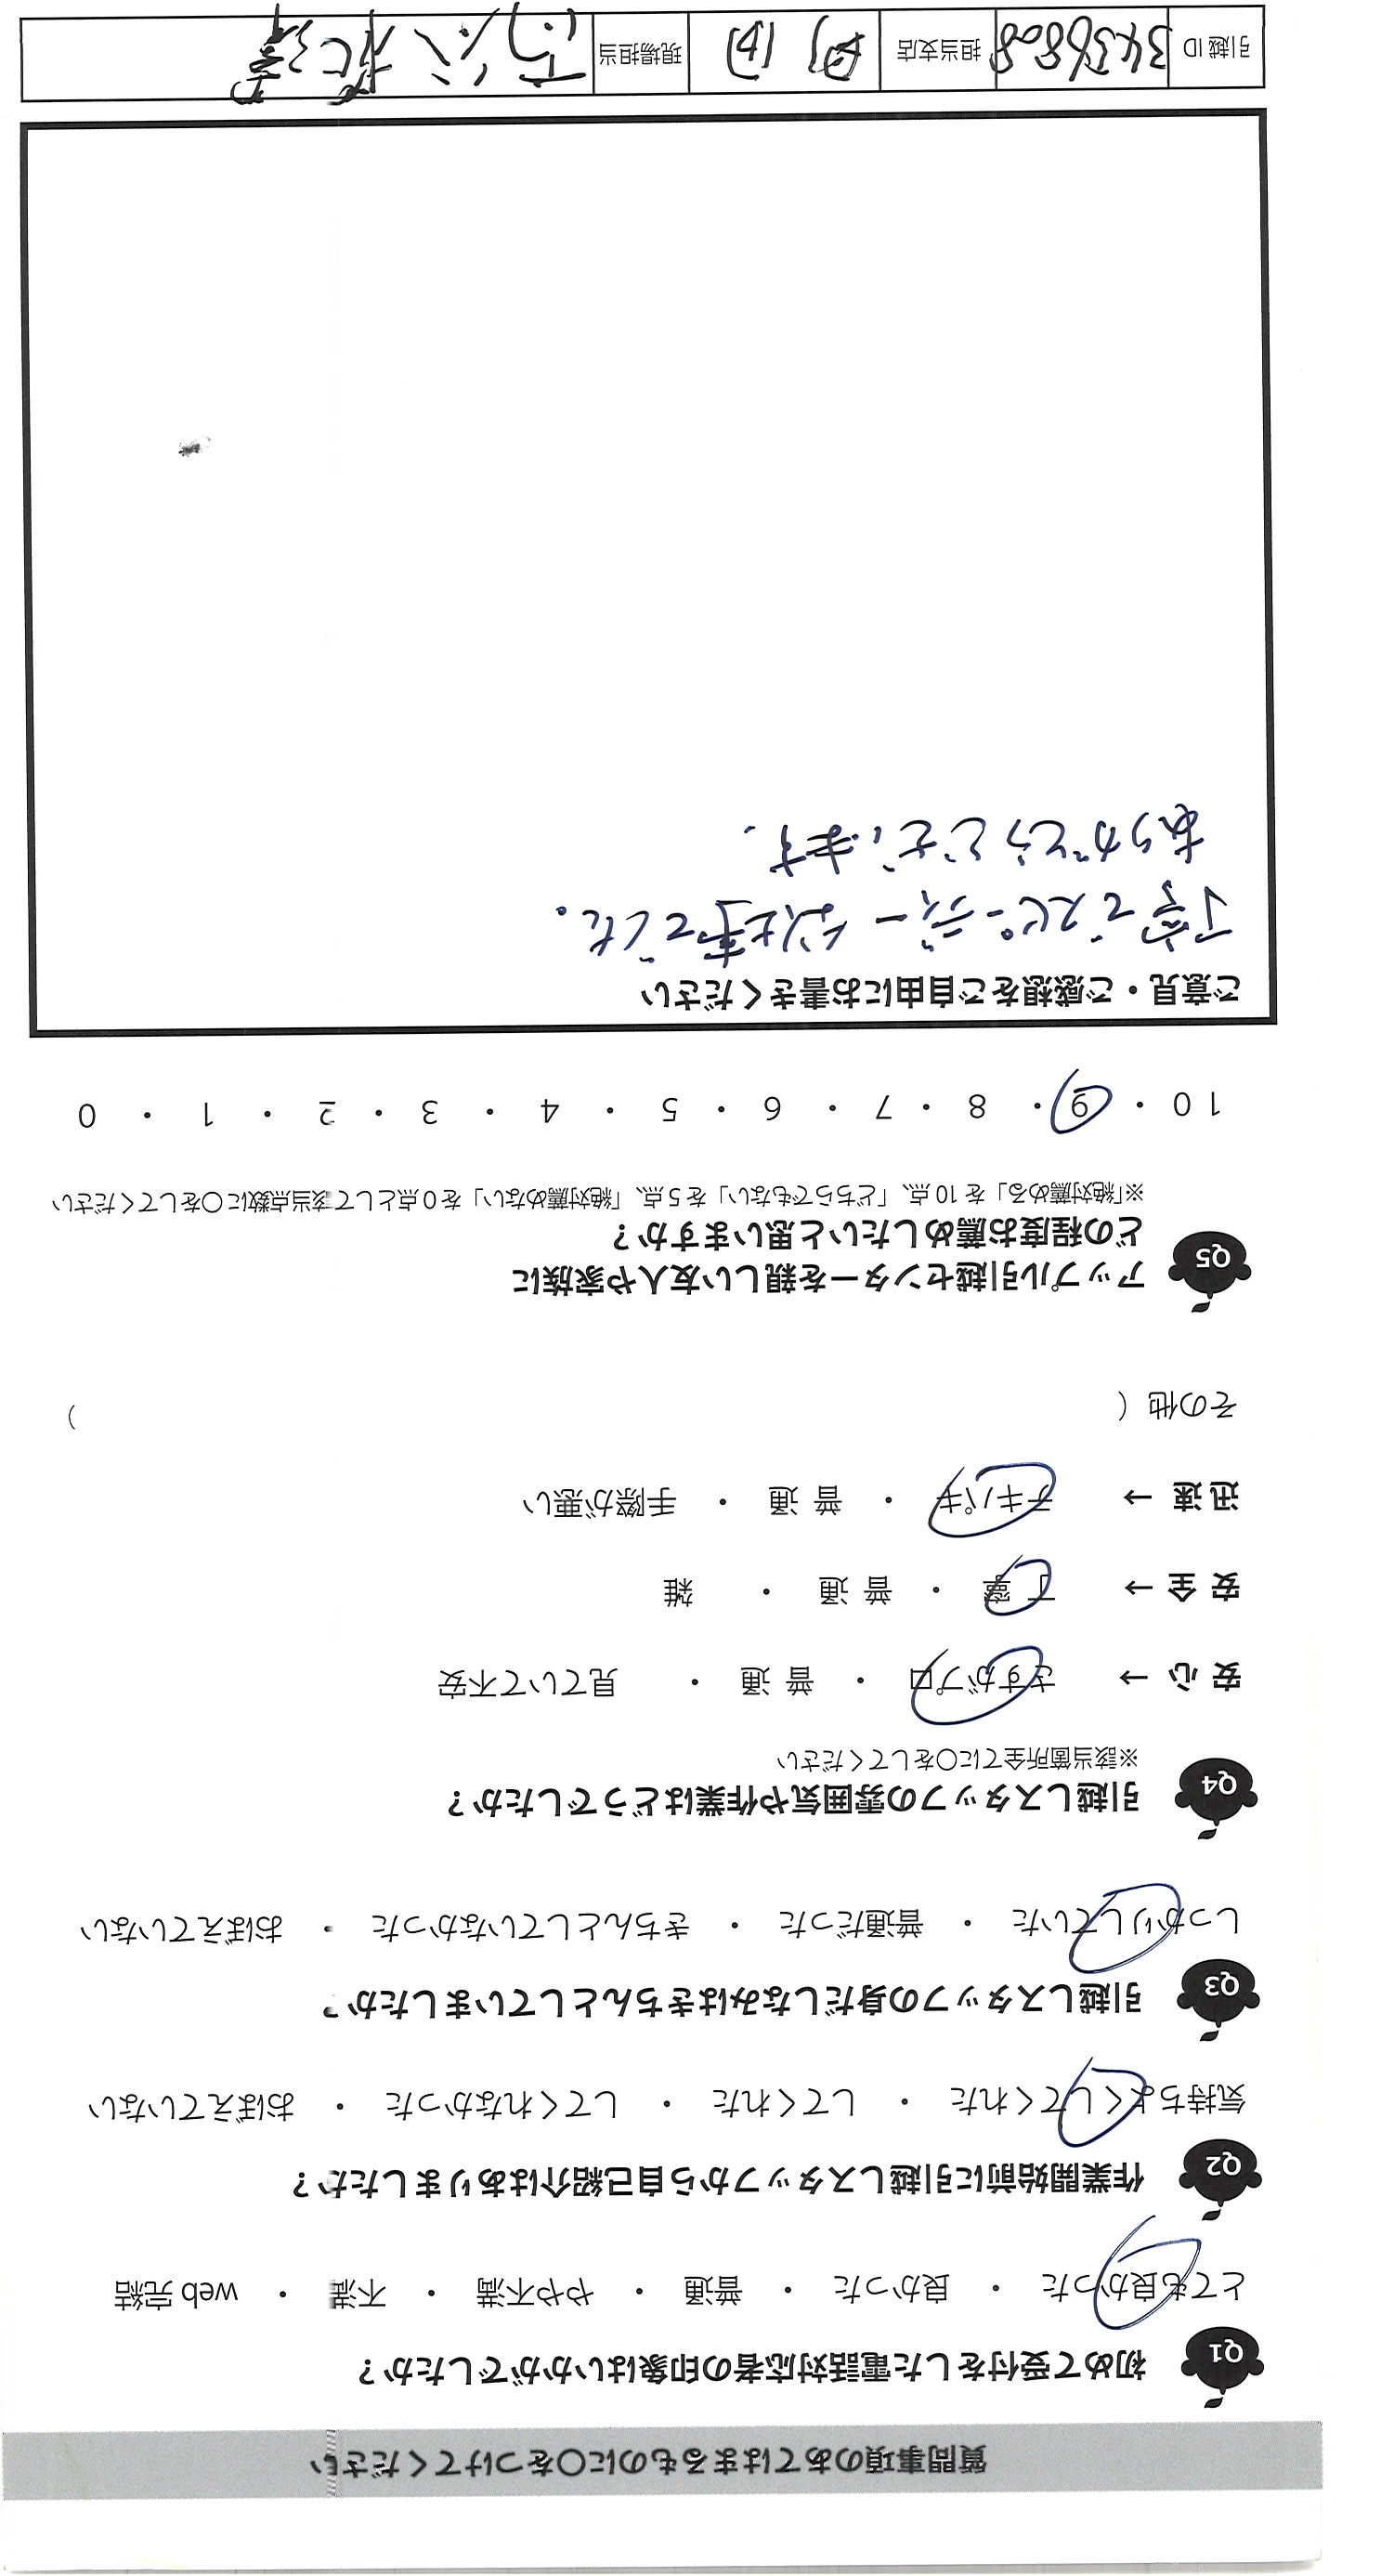 質問事項のあてはまるものに○をつけてください
Q1 初めて受付をした電話対応者の印象はいかがでしたか？
とても良かった ・ 良かった ・ 普通 ・ やや不満 ・ 不満 ・ web 完結
Q2 作業開始前に引越しスタッフから自己紹介はありましたか？
気持ちよくしてくれた ・ してくれた ・ してくれなかった ・ おぼえていない
Q3 引越しスタッフの身だしなみはきちんとしていましたか？
しっかりしていた ・ 普通だった ・ きちんとしていなかった ・ おぼえていない
Q4 引越しスタッフの雰囲気や作業はどうでしたか？
※該当箇所全てに○をしてください
安 心 → さすがプロ ・ 普 通 ・ 見ていて不安
安 全 → 丁 寧 ・ 普 通 ・ 雑
迅 速 → テキパキ ・ 普 通 ・ 手際が悪い
その他（ ）
Q5 アップル引越センターを親しい友人や家族に
どの程度お薦めしたいと思いますか？
※「絶対薦める」を10点、「どちらでもない」を5点、「絶対薦めない」を0点として該当点数に○をしてください
10 ・ 9 ・ 8 ・ 7 ・ 6 ・ 5 ・ 4 ・ 3 ・ 2 ・ 1 ・ 0
ご意見・ご感想をご自由にお書きください
丁寧でスピーディー な仕事でした。
ありがとうございます.
引越 ID 3436808 担当支店 現場担当